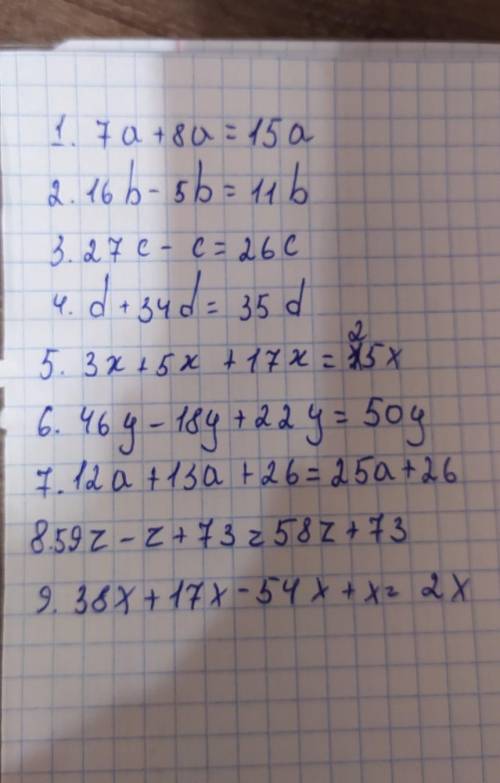 1. 7a + 8a = 15a
2. 16b - 5b = 11b
3. 27c - c = 26c
4. d + 34d = 35d
5. 3x + 5x + 17x = 25x
6. 46y - 18y + 22y = 50y
7. 12a + 13a + 26 = 25a + 26
8. 59z - z + 73 = 58z + 73
9. 38x + 17x - 54x + x = 2x